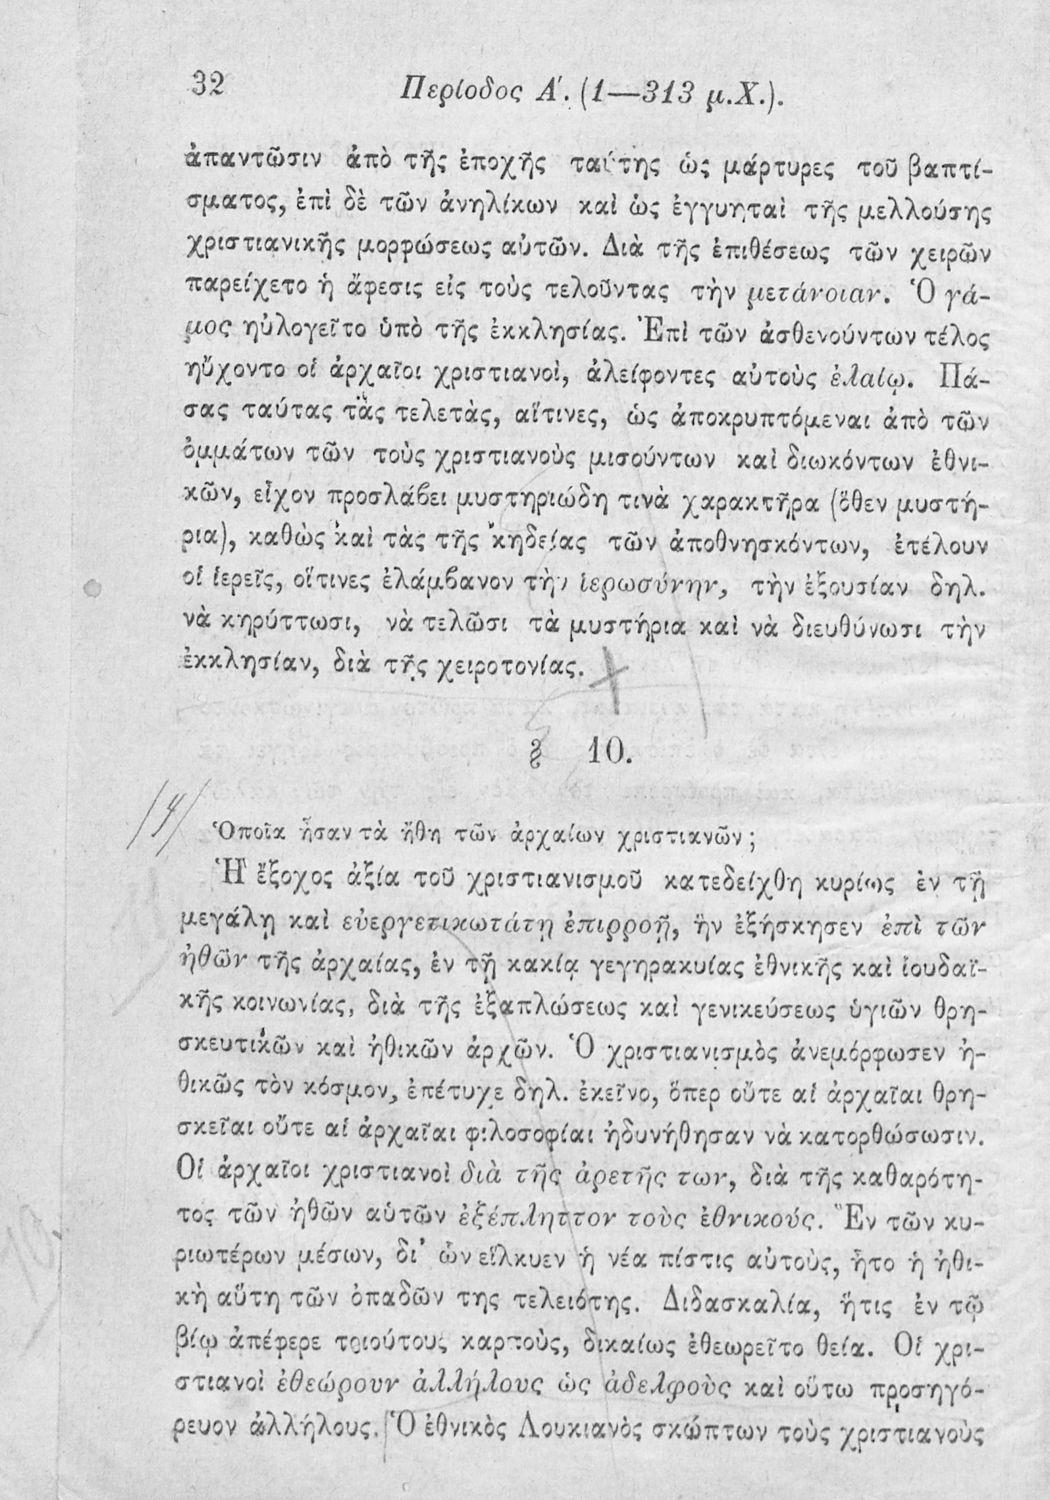 32 Περίοδος Α΄. (1—313 μ.Χ.).
ἀπαντῶσιν ἀπὸ τῆς ἐποχῆς ταύτης ὡς μάρτυρες τοῦ βαπτί-
σματος, ἐπὶ δὲ τῶν ἀνηλίκων καὶ ὡς ἐγγυηταὶ τῆς μελλούσης
χριστιανικῆς μορφώσεως αὐτῶν. Διὰ τῆς ἐπιθέσεως τῶν χειρῶν
παρείχετο ἡ ἄφεσις εἰς τοὺς τελοῦντας τὴν μετάνοιαν. Ὁ γά-
μος ηὐλογεῖτο ὑπὸ τῆς ἐκκλησίας. Ἐπὶ τῶν ἀσθενούντων τέλος
ηὔχοντο οἱ ἀρχαῖοι χριστιανοὶ, ἀλείφοντες αὐτοὺς ἐλαίῳ. Πά-
σας ταύτας τὰς τελετὰς, αἵτινες, ὡς ἀποκρυπτόμεναι ἀπὸ τῶν
ὀμμάτων τῶν τοὺς χριστιανοὺς μισούντων καὶ διωκόντων ἐθνι-
κῶν, εἶχον προσλάβει μυστηριώδη τινὰ χαρακτῆρα (ὅθεν μυστή-
ρια), καθὼς καὶ τὰς τῆς κηδείας τῶν ἀποθνησκόντων, ἐτέλουν
οἱ ἱερεῖς, οἵτινες ἐλάμβανον τὴν ἱερωσύνην, τὴν ἐξουσίαν δηλ.
νὰ κηρύττωσι, νὰ τελῶσι τὰ μυστήρια καὶ νὰ διευθύνωσι τὴν
ἐκκλησίαν, διὰ τῆς χειροτονίας.
§ 10.
Ὁποῖα ἦσαν τὰ ἤθη τῶν ἀρχαίων χριστιανῶν;
Ἡ ἔξοχος ἀξία τοῦ χριστιανισμοῦ κατεδείχθη κυρίως ἐν τῇ
μεγάλῃ καὶ εὐεργετικωτάτῃ ἐπιρροῇ, ἣν ἐξήσκησεν ἐπὶ τῶν
ἠθῶν τῆς ἀρχαίας, ἐν τῇ κακίᾳ γεγηρακυίας ἐθνικῆς καὶ ἰουδαϊ-
κῆς κοινωνίας, διὰ τῆς ἐξαπλώσεως καὶ γενικεύσεως ὑγιῶν θρη-
σκευτικῶν καὶ ἠθικῶν ἀρχῶν. Ὁ χριστιανισμὸς ἀνεμόρφωσεν ἠ-
θικῶς τὸν κόσμον, ἐπέτυχε δηλ. ἐκεῖνο, ὅπερ οὔτε αἱ ἀρχαῖαι θρη-
σκεῖαι οὔτε αἱ ἀρχαῖαι φιλοσοφίαι ἠδυνήθησαν νὰ κατορθώσωσιν.
Οἱ ἀρχαῖοι χριστιανοὶ διὰ τῆς ἀρετῆς των, διὰ τῆς καθαρότη-
τος τῶν ἠθῶν αὑτῶν ἐξέπληττον τοὺς ἐθνικούς. Ἓν τῶν κυ-
ριωτέρων μέσων, δι᾽ ὧν εἵλκυεν ἡ νέα πίστις αὐτοὺς, ἦτο ἡ ἠθι-
κὴ αὕτη τῶν ὀπαδῶν της τελειότης. Διδασκαλία, ἥτις ἐν τῷ
βίῳ ἀπέφερε τοιούτους καρποὺς, δικαίως ἐθεωρεῖτο θεία. Οἱ χρι-
στιανοὶ ἐθεώρουν ἀλλήλους ὡς ἀδελφοὺς καὶ οὕτω προσηγό-
ρευον ἀλλήλους. Ὁ ἐθνικὸς Λουκιανὸς σκώπτων τοὺς χριστιανοὺς